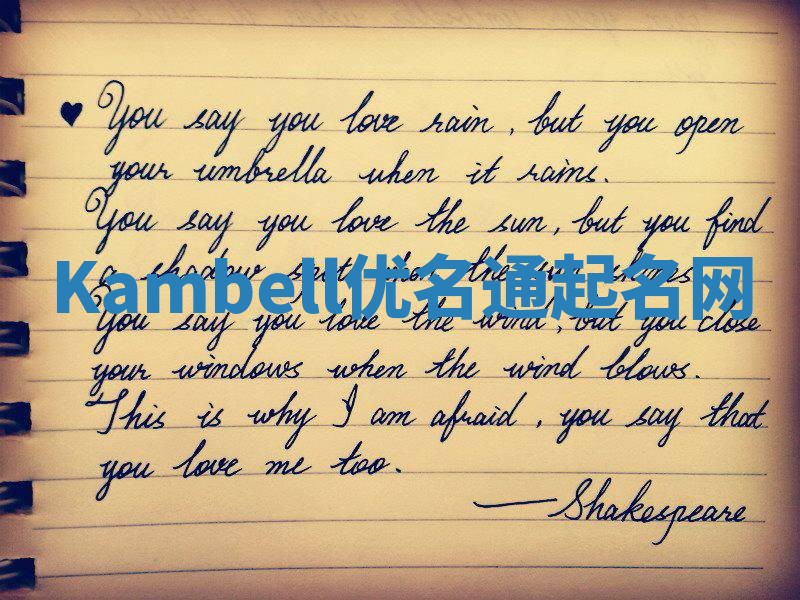 ♥ You say you love rain, but you open
your umbrella when it rains.
You say you love the sun, but you find
a shadow spot when the sun shines
Kambell优名通起名网
You say you love the wind, but you close
your windows when the wind blows.
This is why I am afraid, you say that
you love me too.
—Shakespeare